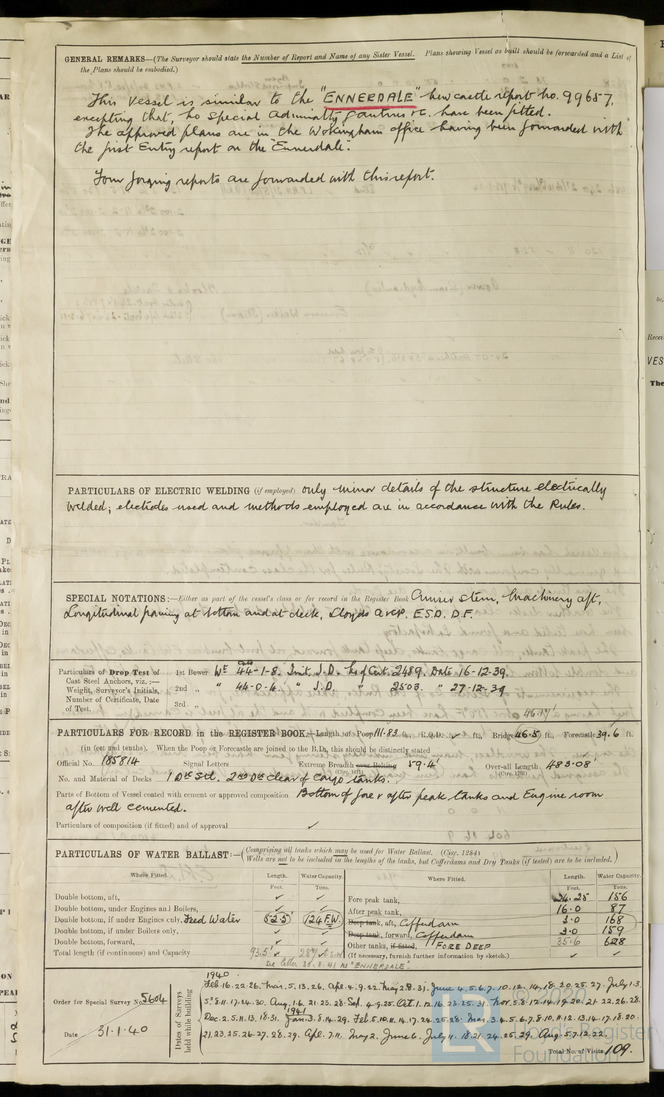 GENERAL REMARKS—(The Surveyor should state the Number of Report and Name of any Sister Vessel. Plans showing Vessel as built should be forwarded and a List of
the Plans should be embodied.)
This Vessel is similar to the "ENNERDALE" Newcastle report no. 99657,
excepting that, no special Admiralty &c. have been fitted.
The approved plans are in the Wokingham office having been forwarded with
the first Entry report on the Ennerdale.
Four forging reports are forwarded with this report.
PARTICULARS OF ELECTRIC WELDING (if employed) only minor details of the structure electrically
welded; electrodes used and methods employed are in accordance with the Rules.
SPECIAL NOTATIONS:—Either as part of the vessel's class or for record in the Register Book Cruiser stem, Machinery aft,
Longitudinal framing at bottom and at deck, Lloyds A & CP. E.S.D. D.F.
Particulars of Drop Test of
Cast Steel Anchors, viz.:—
Weight, Surveyor's Initials,
Number of Certificate, Date
of Test.
1st Bower Wt 44-1-8. Init. J.D. No of Cert. 2489. Date 16-12-39.
2nd " " 44-0-4. " J.D. " 2503. " 27-12-39
3rd "
46.17'
PARTICULARS FOR RECORD IN THE REGISTER BOOK:—Length of Poop 111.83 ft., R.Q.D. ✓ ft., Bridge 46.5 ft., Forecastle 39.6 ft.
(in feet and tenths). When the Poop or Forecastle are joined to the B.D., this should be distinctly stated
Official No. 185814 Signal Letters Extreme Breadth over Belting 59.4' Over-all Length 483.08'
(Circ. 1291) (Circ. 1291)
No. and Material of Decks 1 Dk Stl. 2nd Dk clear of cargo tanks.
Parts of Bottom of Vessel coated with cement or approved composition Bottom of fore & after peak tanks and Engine room
after well cemented.
Particulars of composition (if fitted) and of approval ✓
PARTICULARS OF WATER BALLAST:—(Comprising all tanks which may be used for Water Ballast. (Circ. 1284)
Wells are not to be included in the lengths of the tanks, but Cofferdams and Dry Tanks (if tested) are to be included.)
Where Fitted. Length. Water Capacity. Where Fitted. Length. Water Capacity.
Feet. Tons. Feet. Tons.
Double bottom, aft, ✓ ✓ Fore peak tank, 24.25 156
Double bottom, under Engines and Boilers, ✓ ✓ After peak tank, 16.0 87
Double bottom, if under Engines only, Feed Water 52.5 124 F.W. Deep tank, aft, Cofferdam 3.0 168
Double bottom, if under Boilers only, ✓ ✓ Deep tank, forward, Cofferdam 3.0 159
Double bottom, forward, ✓ ✓ Other tanks, if fitted, FORE DEEP 35.6 628
Total length (if continuous) and Capacity 93.5' (If necessary, furnish further information by sketch.) ✓ ✓
See letter 28.8.41 M "ENNERDALE"
Order for Special Survey No. 5604
Date 31.1.40
Dates of Surveys held while building
1940
Feb. 16. 22. 26. Mar. 5. 13. 26. Apl. 4. 9. 22. May 28. 31. June 4. 5. 6. 7. 10. 12. 14. 18. 20. 25. 27. July 1. 3.
5. 8. 11. 17. 24. 30. Aug. 1. 6. 21. 23. 28. Sep. 4. 9. 25. Oct. 1. 12. 16. 23. 25. 31. Nov. 5. 8. 12. 14. 19. 20. 21. 22. 26. 28.
1941
Dec. 2. 5. 11. 13. 18. 31. Jan. 3. 8. 14. 29. Feb. 5. 10. 11. 14. 17. 24. 25. 28. Mar. 3. 4. 5. 6. 7. 8. 10. 11. 12. 13. 14. 17. 18. 20.
21. 23. 25. 26. 27. 28. 29. Apl. 7. 11. May 2. June 6. July 11. 18. 21. 24. 25. 29. Aug. 5. 7. 12. 22.
Total No. of Visits 109.
© 2020
Lloyd's Register
Foundation